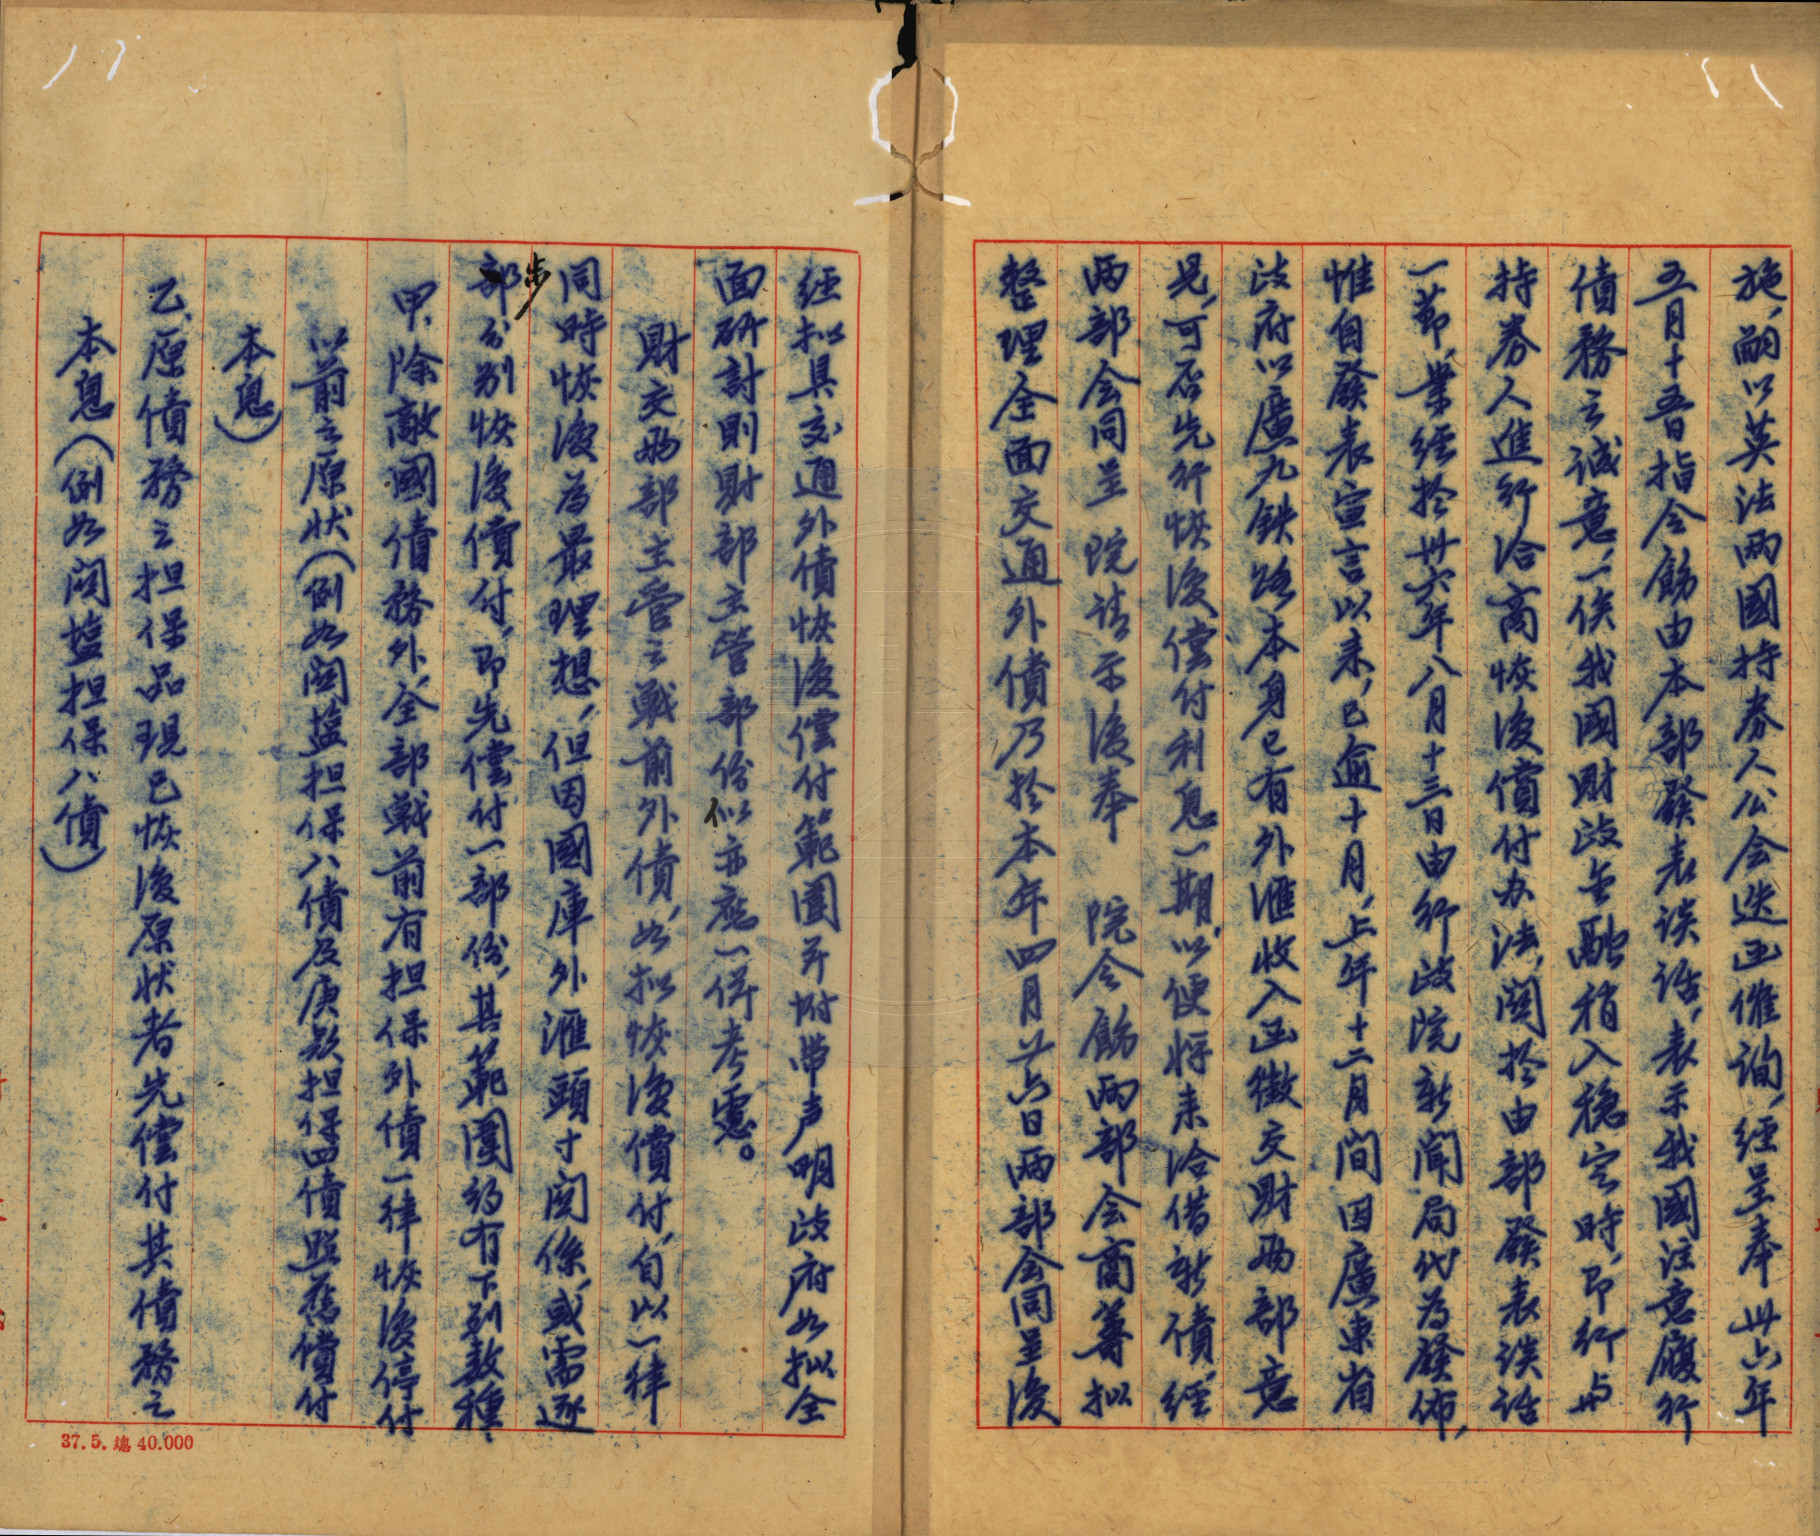 施，嗣以英法兩國持券人公会迭函催詢，經呈奉卅六年
五月十五日指令飭由本部發表談話，表示我國注意履行
債務之誠意，一俟我國財政金融稍入穩定時，即行与
持券人進行洽商恢復償付办法，関於由部發表談話
一節，業經於卅六年八月十三日由行政院新闻局代为發佈，
惟自發表宣言以来，已逾十月，上年十二月间因廣東省
政府以廣九鉄路本身已有外滙收入函徵交財两部意
見，可否先行恢復償付利息一期，以便將来洽借新債，經
两部会同呈 院請示後奉 院令飭兩部会商籌拟
整理全面交通外債乃於本年四月廿六日两部会同呈復
經拟具交通外債恢復償付範圍并附带声明政府如拟全
面研討則財部主管部份似亦應一併考慮。
財交两部主管之戰前外債，如拟恢復償付，自以一律
同時恢復为最理想，但因國庫外滙頭寸関係，或需逐
步
部分别恢復償付，即先償付一部份，其範圍約有下列数種
甲、除敵國債務外，全部戰前有担保外債一律恢復停付
以前之原状（例如関盐担保八債及庚款担保四債照舊償付
本息）
乙、原債務之担保品現已恢復原状者先償付其債務之
本息（例如関盐担保八債）
37.5.總40.000